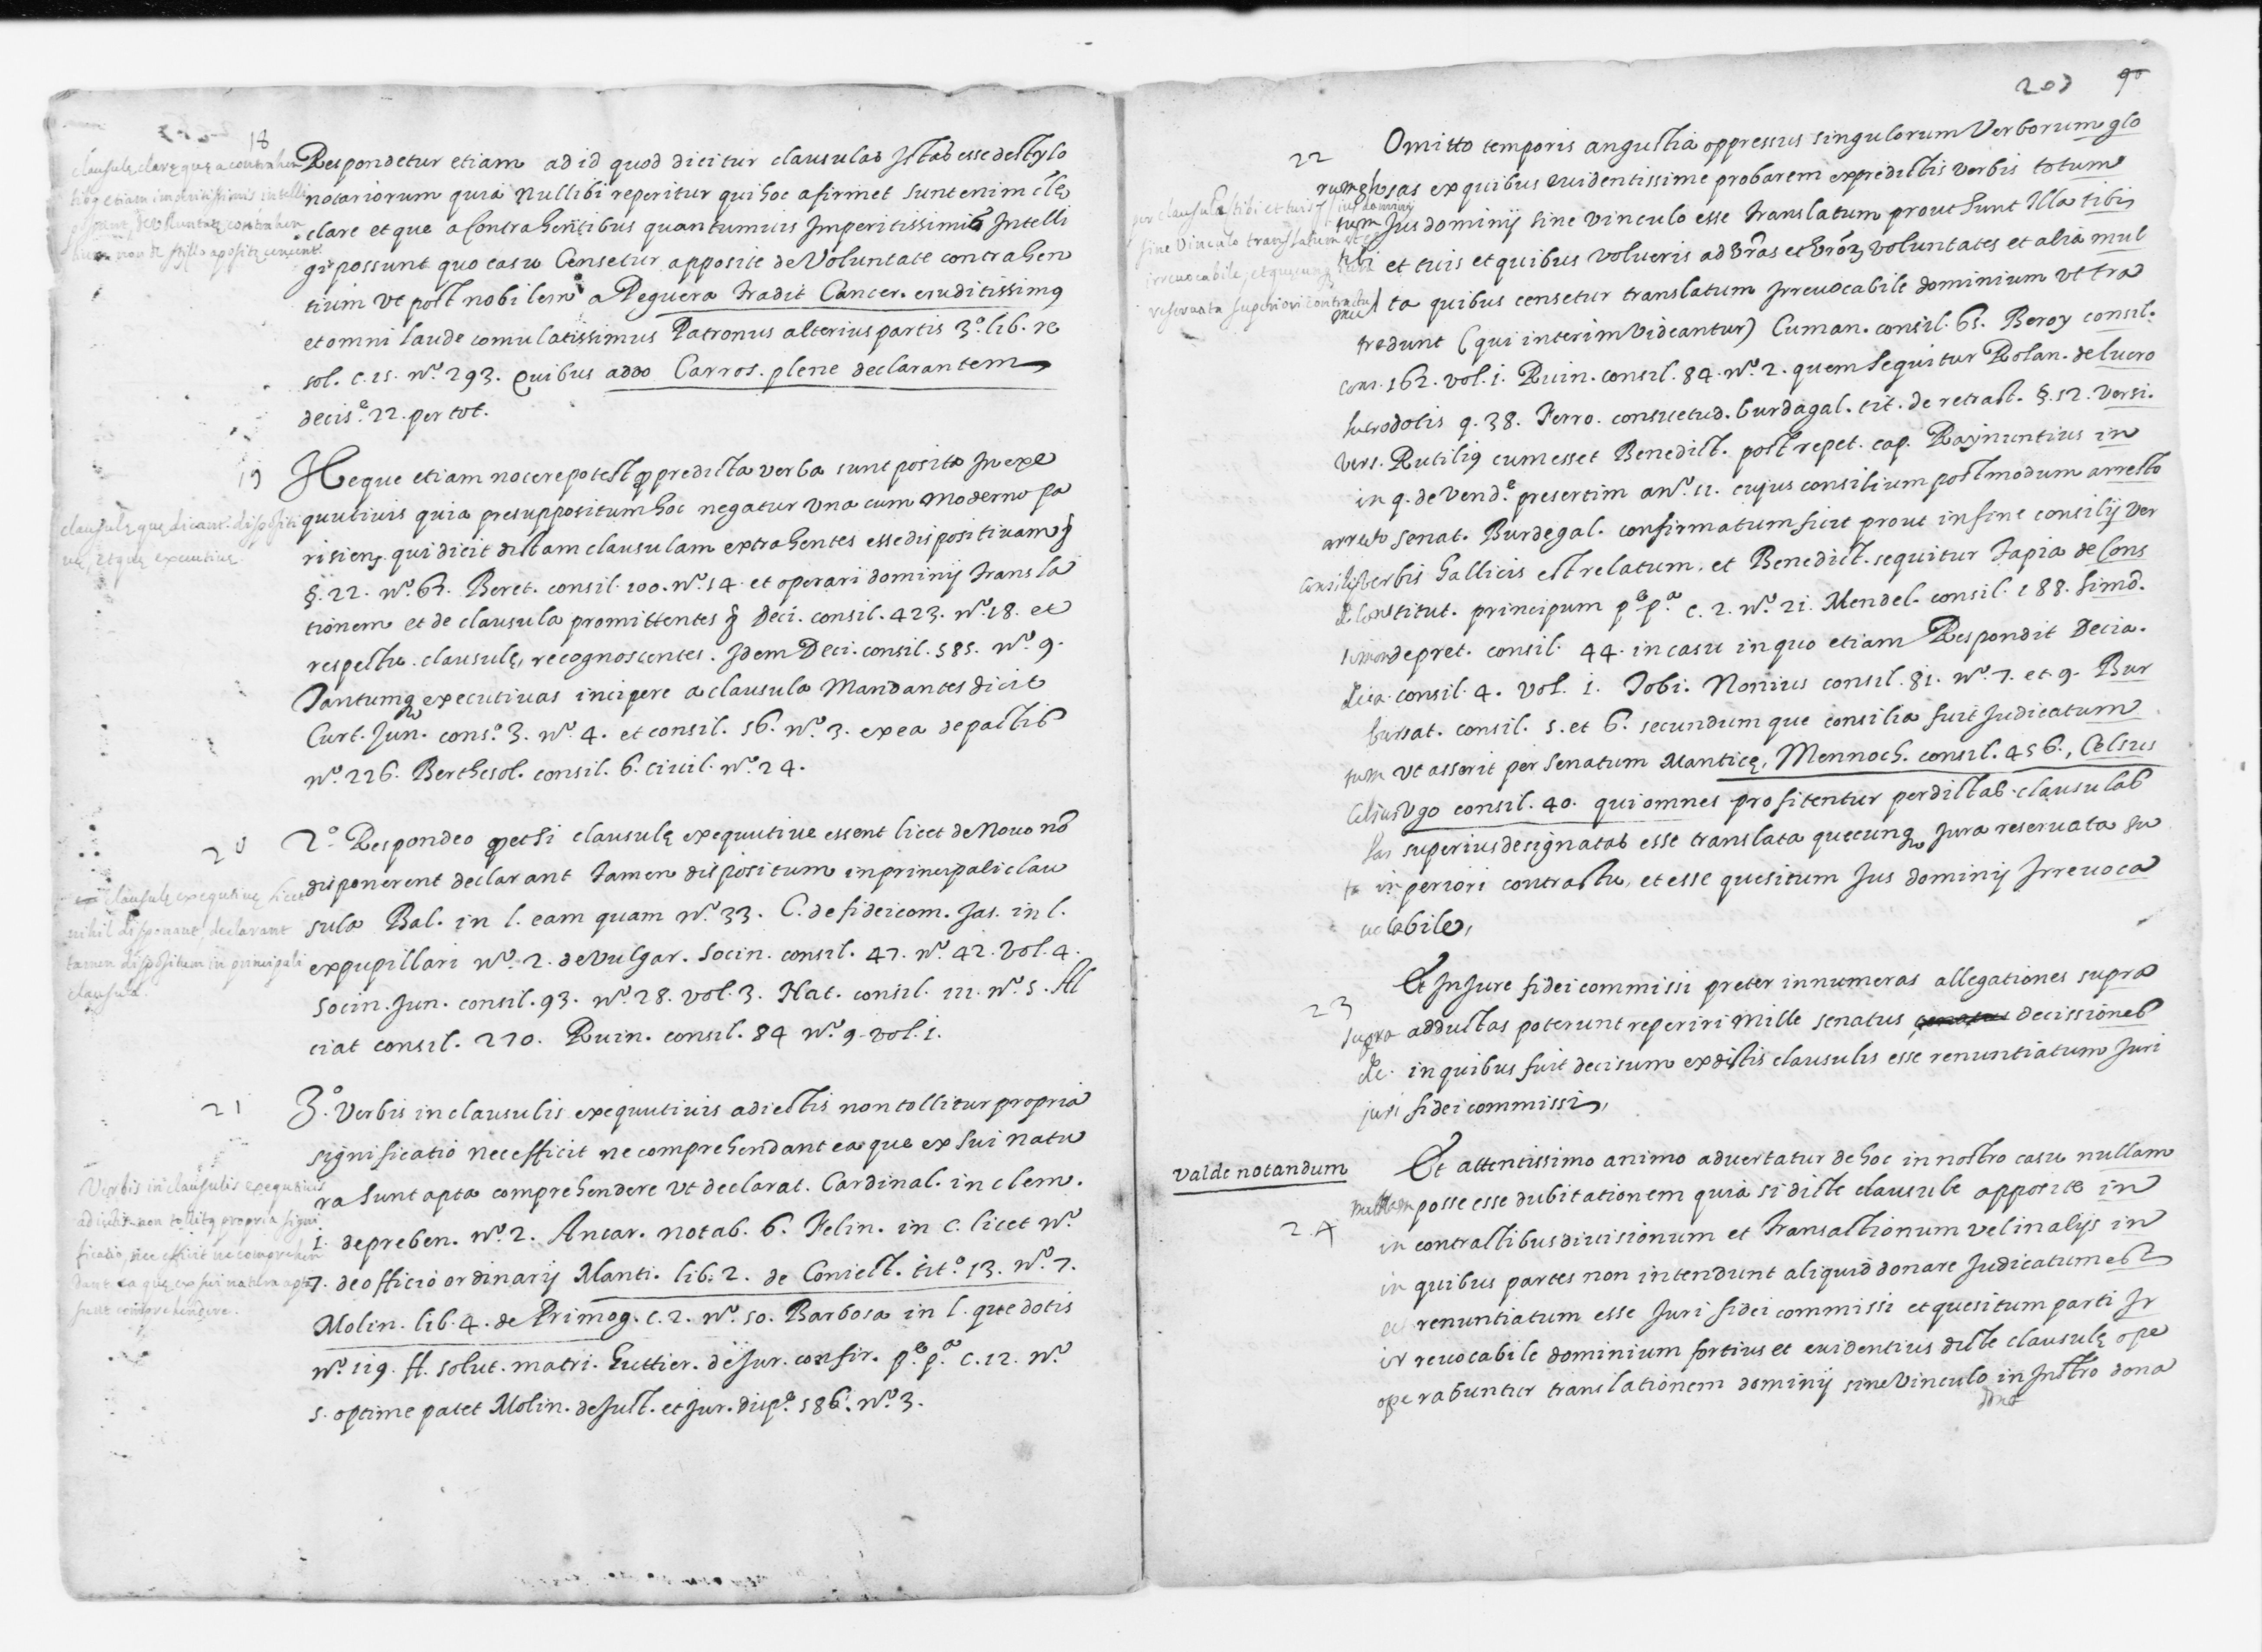 18
Respondetur etiam ad id quod dicitur clausulas Istas esse destylo
notariorum quia nullibi reperitur qui hoc afirmet sunt enim clę
clare et que a Contrahentibus quantumuis Imperitissimis Intelli
gi possunt quo casu Censetur apposite de Voluntate contrahen
tium vt post nobilem a Peguera tradit Cancer. eruditissimꝰ
et omni laude comulatissimus Patronus alterius partis 3.º lib. re
sol. c. 15. nº. 293. Quibus addo Carros. plene declarantem
decis.e 22. per tot.
19
Neque etiam nocere potest ꝙ predicta verba sunt posita In exe
clausulę quę dicant. dispositi
quutiuis quia presuppositum hoc negatur vna cum moderno pa
uę, et quę executiuę.
risien. qui dicit dictam clausulam extrahentes esse dispositiuam
§. 22. nº. 67. Beret. consil. 100. nº. 14. et operari dominij transla
tionem et de clausula promittentes Deci. consil. 423. nº. 18. et
respectu clausulę, recognoscentes. Idem Deci. consil. 585. nº. 9.
Tantumq executiuas incipere a clausula Mandantes dicit
Curt. Jun. cons.º 3. nº. 4. et consil. 56. nº. 3. ex ea de pactis
nº. 226. Berthesol. consil. 6. ciuil. nº. 24.
20
2.º Respondeo ꝙ et si clausulę exequutiue essent licet de Nouo nō
clausulę exequtiuę licet
disponerent declarant tamen dispositum in principali clau
nihil disponant, declarant
sula Bal. in l. eam quam nº. 33. C. de fideicom. Jas. in l.
tamen dispositum in principali
ex pupillari nº. 2. de vulgar. Socin. consil. 47. nº. 42. vol. 4.
clausula.
Socin. Jun. consil. 93. nº. 28. vol. 3. Nat. consil. 111. nº. 5. Al
ciat consil. 270. Ruin. consil. 84 nº. 9. vol. 1.
21
3.º Verbis in clausulis exequutiuis adiectis non tollitur propria
significatio nec efficit ne comprehendant ea que ex sui natu
Verbis in clausulis exequtiuis
ra sunt apta comprehendere vt declarat. Cardinal. in clem.
adiectis non tollitꝰ propria signi
1. de preben. nº. 2. Ancar. notab. 6. Felin. in c. licet nº.
ficatio, nec efficit ne comprehen
7. de officio ordinarij Manti. lib. 2. de Coniect. tit.º 13. nº. 7.
dant ea quę ex sui natura apta
Molin. lib. 4. de Primog. c. 2. nº. 50. Barbosa in l. que dotis
sunt comprehendere.
nº. 119. ff. solut. matri. Guttier. de Jur. confir. p.e p.a c. 12. nº.
5. optime patet Molin. de Just. et Jur. disp.e 586. nº. 3.
203 90
22
Omitto temporis angustia oppressus singulorum Verborum glo
sas ex quibus euidentissime probarem ex predictis verbis totum
Jus dominij sine vinculo esse translatum prout sunt Illa tibi
sine Vinculo translatum
tibi et tuis et quibus volueris ad vr̃as et vr̃oꝝ voluntates et alia mul
mul ta quibus censetur translatum Irreuocabile dominium vt tra
reseruata superiori contractu
tradunt (qui interim Videantur) Cuman. consil. 65. Beroy consil.
cons. 162. vol. 1. Ruin. consil. 84. nº. 2. quem sequitur Rolan. de lucro
lucro dotis q. 38. Ferro. consuetud. burdagal. tit. de retract. §. 12. versi.
vers. Rutiliꝰ cum esset Benedict. post repet. cap. Raynuntius in
in q. de Vend.e presertim a nº. 11. cujus consilium postmodum arresto
arresto Senat. Burdegal. confirmatum fuit prout in fine consilij ver
consilij verbis Gallicis est relatum. et Benedict. sequitur Tapia de Cons
Constitut. principum p.e p.a c. 2. nº. 21. Mendel. consil. 188. Simō.
simon de pret. consil. 44. in casu in quo etiam Respondit Decia.
decia. consil. 4. vol. 1. Jobi. Nonius consil. 81. nº. 7. et. 9. Bur
bursat. consil. 5. et 6. secundum que consilia fuit Judicatum
tum vt asserit per Senatum Mantice, Mennoch. consil. 456., Celsus
Celsus Vgo consil. 40. qui omnes profitentur per dictas clausulas
las superius designatas esse translata quecunq Jura reseruata su
in periori contractu, et esse quesitum Jus dominij Irreuoca
cabile,
23
Et In Jure fidei commissi preter innumeras allegationes supra
supra adductas poterunt reperiri mille senatus decissiones
dec. in quibus fuit decisum ex dictis clausulis esse renuntiatum Juri
juri fidei commissi,
Valde notandum
Et attentissimo animo aduertatur de hoc in nostro casu nullam
nullam posse esse dubitationem quia si dicte clausule apposite in
24
in contractibus diuisionum et transactionum vel in alijs in
in quibus partes non intendunt aliquid donare Judicatum est
renuntiatum esse Juri fidei commissi et quesitum parti Ir
ir reuocabile dominium fortius et euidentius dicte clausulę ope
ope rabuntur translationem dominij sine Vinculo in Instro dona
dona